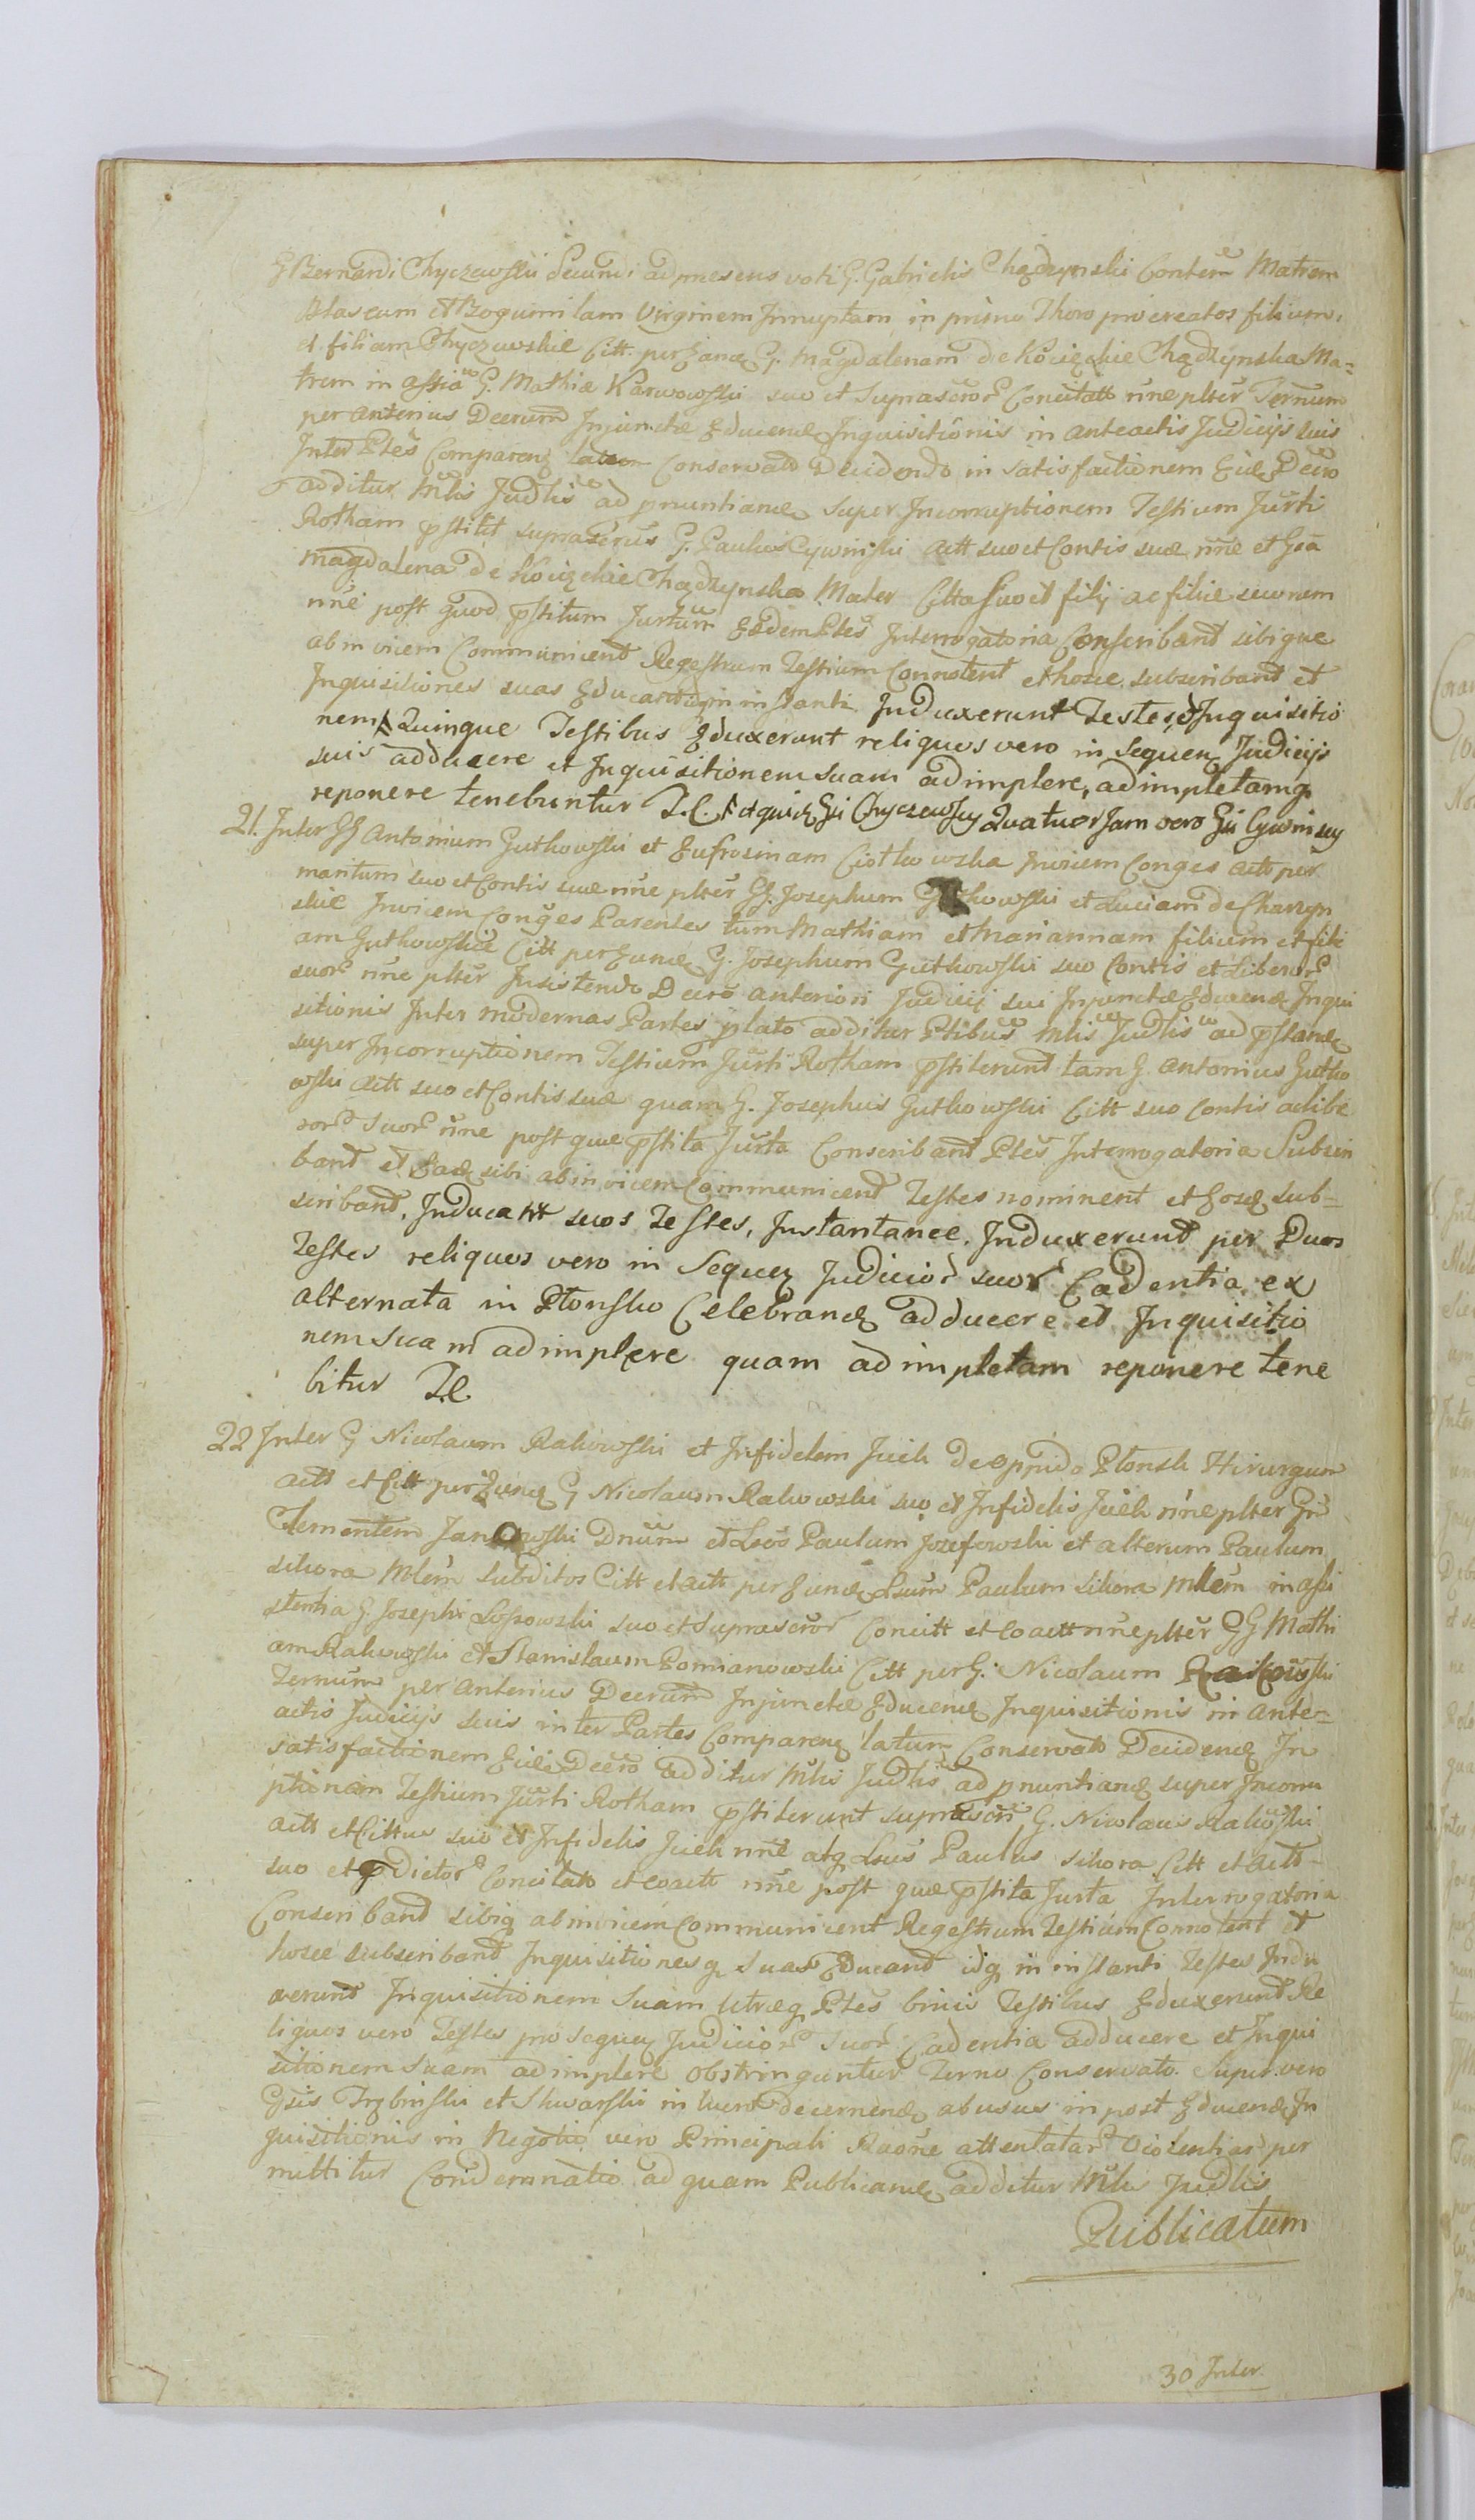 G Bernardi Chyczewski Secundi ad presens voti G. Gabrielis Chądzynski Contem Matrem
Blaseum et Bogumilam Virginem Innuptam in primo Thoro procreatos filium,
et filiam Chyczewskie Citt. per G. Magdalenam de Kocięckie Chądzynska Ma-
trem in assia G. Mathiæ Karwowski suo et Suprascror Concitatt nne plter Ternum
per anterius Decrum Injunctæ Educenæ Inquisitionis in anteactis Judicijs suis
Inter Ptes Comparen latum Conservato Decidendo in satisfactionem Ejæ Decro
additur Mlis Judlis ad pnuntianæ super Incorruptionem Testium Jurti
Rotham pstitit suprascrus G. Paulus Cywinski Actt suo et Contis suæ nne et Gsa
Magdalena de Kocięckie Chądzynska Mater Citta suo et filij ac filiæ suorum
nne post quod pstitum Jurtum Eædem Ptes Interrogatoria Conscribant sibique
ab invicem Communicent Regestrum Testium Connotent et hosce subscribant et
Inquisitiones suas Educant idq in instanti Induxerunt Testes, et Inquisitio
nem Quinque Testibus Eduxerunt reliquos vero in Sequen Judicijs
suis adducere et Inquisitionem suam adimplere, adimpletamq
reponere tenebuntur T. C. et quid Gsi Chyczewscy Quatuor Jam vero Gsi Cywinscy
21. Inter GG Antonium Gutkowski et Eufrosinam Ciotkowska Invicem Conges Actt per
maritum suo et Contis suæ nne plter GG. Josephum Gutkowski et Luciam de Charzyn
skie Invicem Conges Parentes tum Mathiam et Mariannam filium et fili
am Gutkowskie Citt per G. Josephum Gutkowski suo Contis et Liberor
suor nne plter Insistendo Decro anteriori Judicij sui Injunctæ Educenæ Inqui
sitionis Inter modernas Partes plato additur Ptibus Mlis Judlis ad pstanæ
super Incorruptionem Testium Jurti Rotham pstiterunt tam G. Antonius Gutko
wski Actt suo et Contis suæ quam G. Josephus Gutkowski Citt suo Contis ac libe
ror suor nne post quæ pstita Jurta Conscribant Ptes Interrogatoria Subscri
bant et Eadæ sibi ab invicem Communicent Testes nominent et hosce sub-
scribant. Inducant suos Testes, Instantanee. Induxerunt per Duos
Testes reliquos vero in Sequen Judicior suor Cadentia ex
alternata in Plonsko Celebranæ adducere et Inquisitio
nem Suam adimplere quam adimpletam reponere tene
bitur T.C.
22 Inter G Nicolaum Rakowski et Infidelem Jcek de oppido Plonsk Hirurgum
Actt et Citt per G Nicolaum Rakowski suo et Infidelis Jcek nne plter Gn
Clementem Jankowski Dnum et Lsos Paulum Jozefowski et alterum Paulum
Sikora Mlem Subditos Citt et Actt per Lsum Paulum Sikora Mlem in assi
stentia G. Josephi Lossowski suo et Suprascror Concitt et Coactt nne plter GG Mathi
am Rakowski et Stanislaum Pomianowski Citt per G. Nicolaum Rakowski
Ternum per Anterius Decrum Injunctæ Educenæ Inquisitionis in Ante-
actis Judicijs suis inter Partes Comparen latum Conservato Decidenæ In
satisfactionem Ejæ Decro additur Mlis Judlis ad pnuntianæ super Incorru
ptionem Testium Jurti Rotham pstiterunt suprascri G. Nicolaus Rakowski
Actt et Cittus suo et Infidelis Jcek nne atq Lsus Paulus Sikora Citt et Actt
suo et pdictor Concitatt et Coactt nne post quæ pstita Jurta Interrogatoria
Conscribant sibiq ab invicem Communicent Regestrum Testium Connotent et
hosce subscribant Inquisitionesq Suas Educant idq in instanti Testes Indu
xerunt Inquisitionem Suam Utræq Ptes binis Testibus Eduxerunt Re
liquos vero Testes pro sequen Judicior Suor Cadentia adducere et Inqui
sitionem Suam adimplere obstringuntur Terno Conservato. Super vero
Gsis Trębinski et Skwarski in lucro decernenæ abusus in post Educenæ In
quisitionis in Negotio vero Principali Raone attentatar Violentiar per
mittitur Condemnatio ad quam Publicanæ additur Mlis Judlis
Publicatum
30 Inter